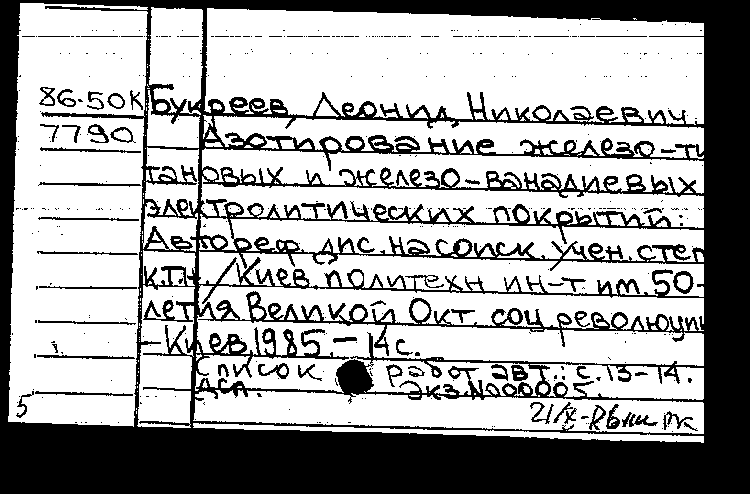 86-50К Букреев, Леонид Николаевич.
7790 Азотирование железо-ти
тановых и железо-ванадиевых
электролитических покрытий:
Автореф. дис. на соиск. учен. степ
к.т.н. / Киев. политехн ин-т им. 50-
летия Великой Окт. соц. революции
- Киев, 1985. - 14 с.
Список работ авт.: с. 13-14.
ДСП. Экз. N000005.
5